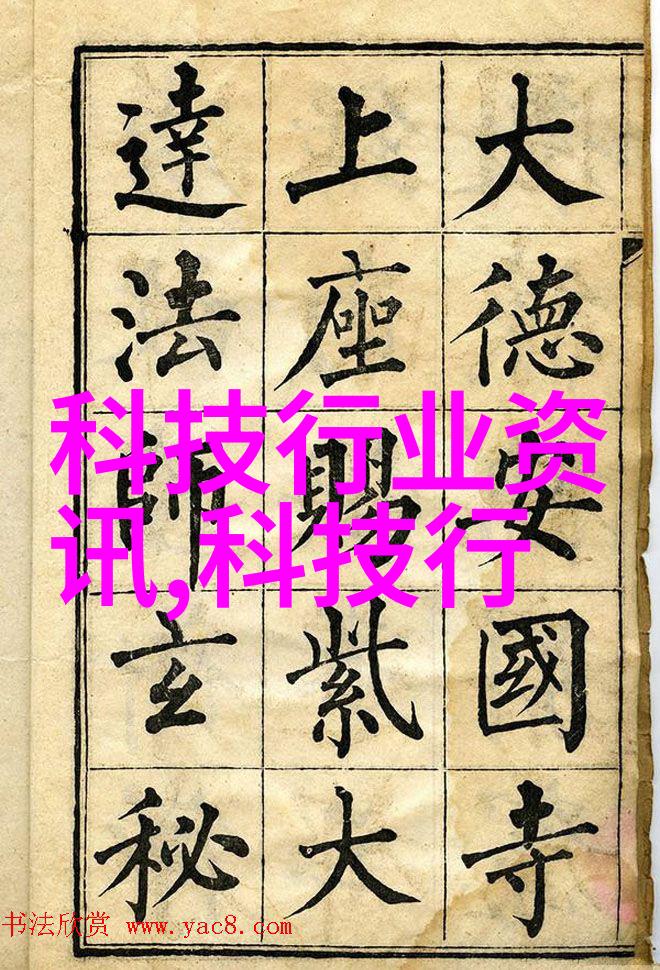 大德安國寺
上座賜紫大
達法師玄秘
科技行业资
讯,科技行
书法欣赏 www.yac8.com